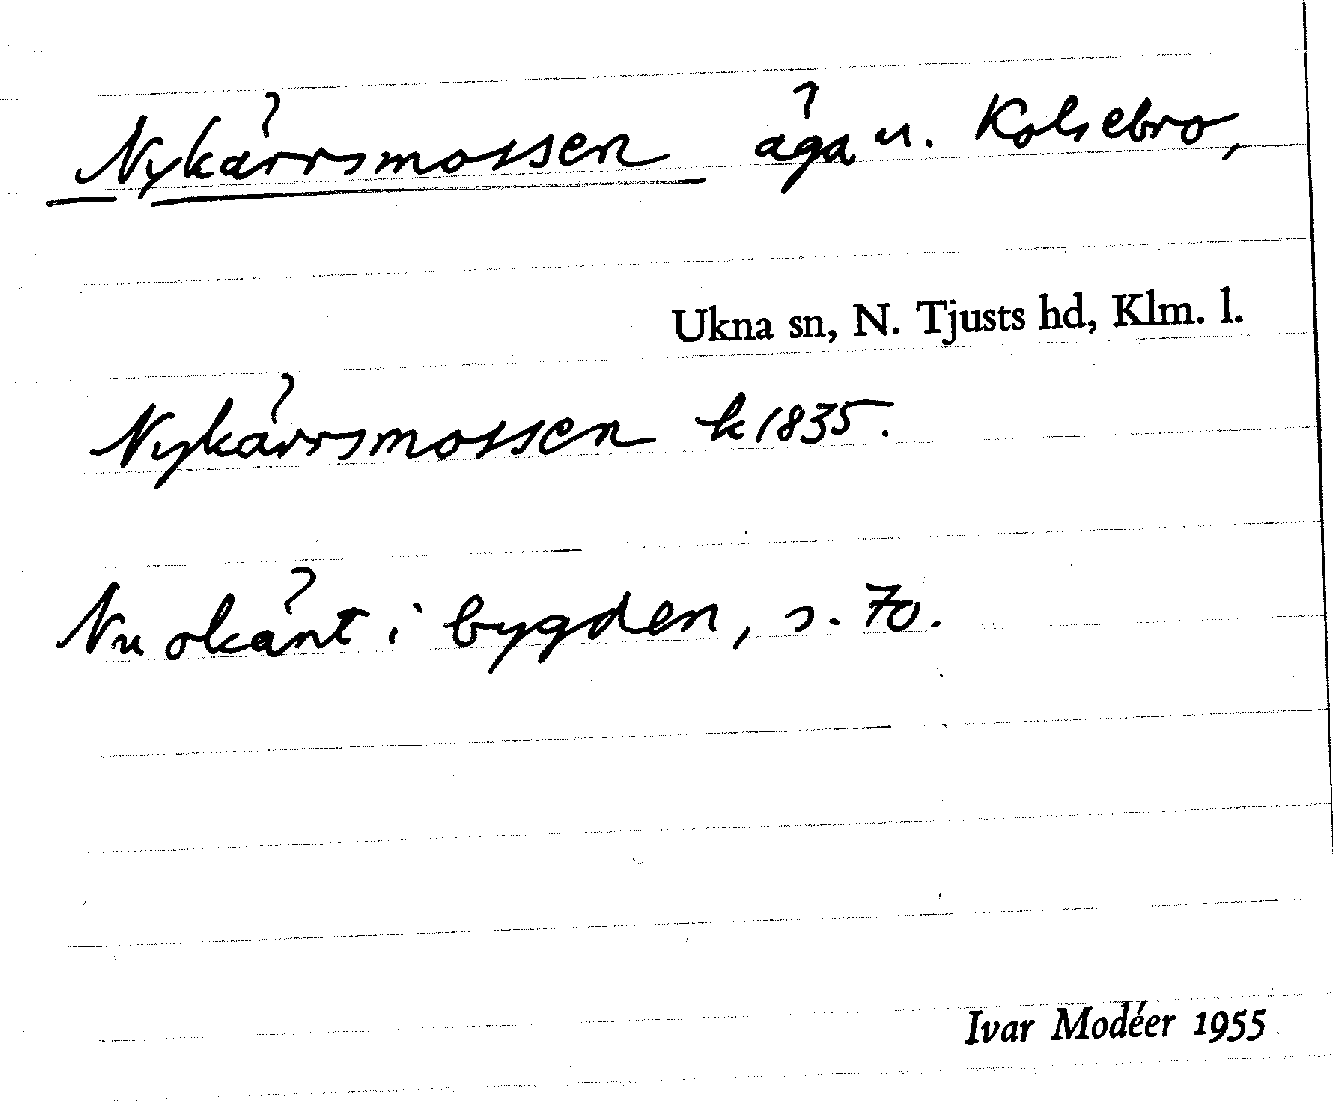 Nykärrsmossen äga u. Kolsebro,
Ukna sn, N. Tjusts hd, Klm. l.
Nykärrsmossen k 1835.
Nu okänt i bygden, s. 70.
Ivar Modéer 1955